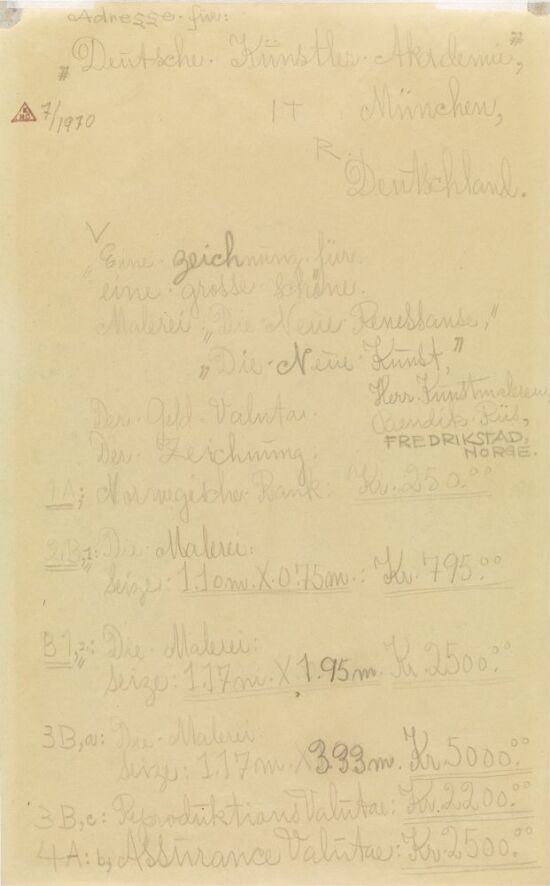 Adresse für:
"Deutsche Künstler Akademie",
7/1970
München,
Deutschland.
"Eine zeichnung für
eine grosse schöne.
Malerei "Die Neue Renessanse,"
"Die Neue Kunst,"
Herr Kunstmaleren
Bendik Riis,
FREDRIKSTAD,
NORGE.
Der Geld Valutae.
Der Zeichnung:
1A; Norwegische Bank: Kr. 250.00
2B,1: Die Malerei:
Seize: 1.10m. X 0.75m.: Kr. 795.00
B1,2: Die Malerei:
Seize: 1.17m. X 1.95m. Kr. 2500.00
3B,a: Die Malerei.
Seize: 1.17m. X 3.33m. Kr. 5000.00
3B,c: Reproduktions Valutae: Kr. 2200.00
4A: b, Assurance Valutae: Kr. 2500.00